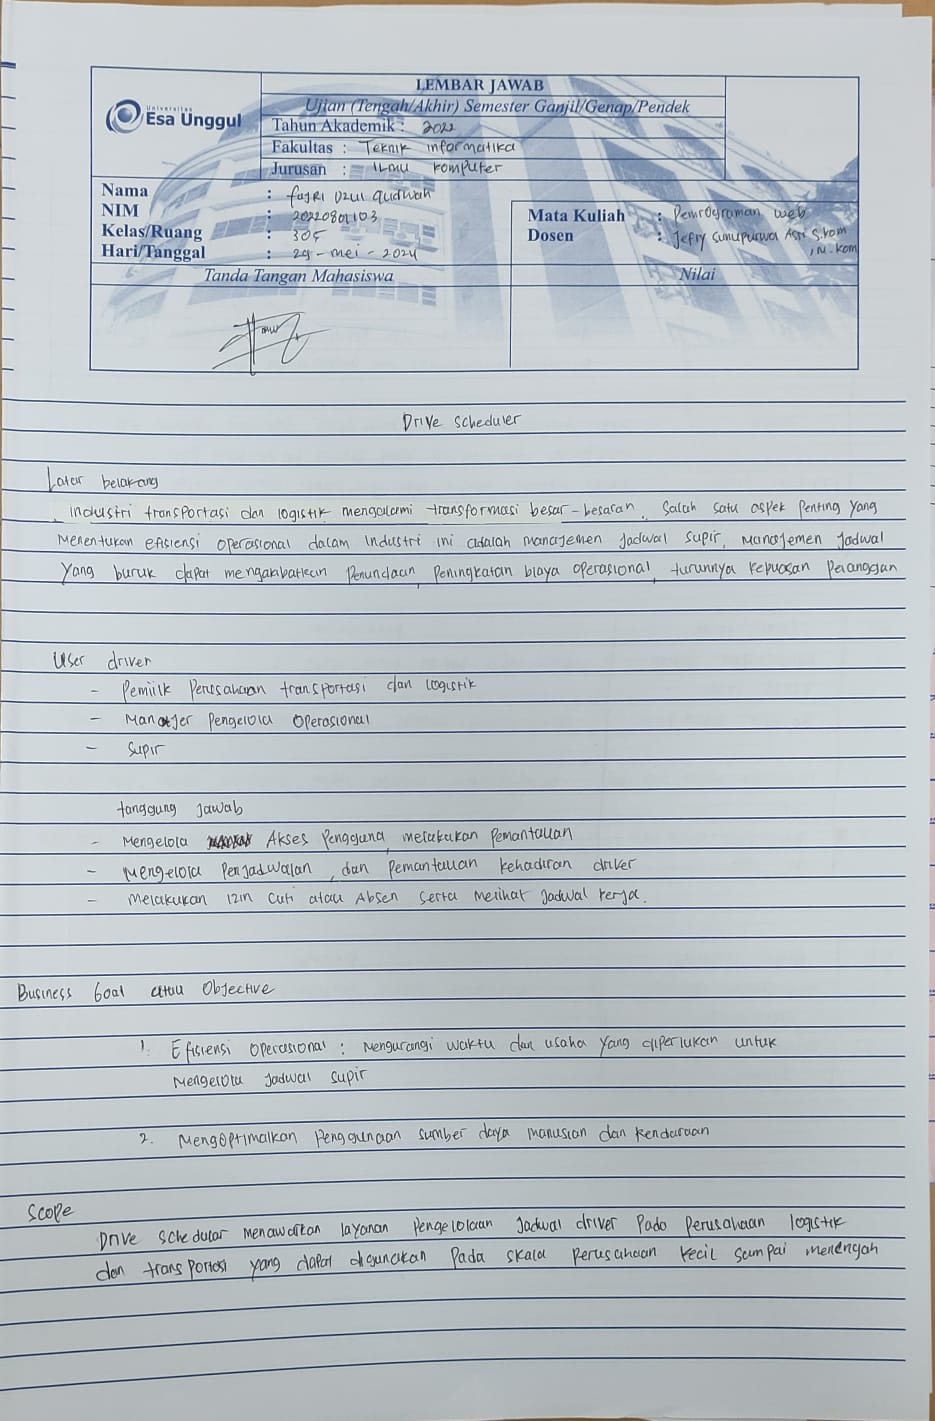 Universitas
Esa Unggul
LEMBAR JAWAB
Ujian (Tengah/Akhir) Semester Ganjil/Genap/Pendek
Tahun Akademik : 2022
Fakultas : Teknik informatika
Jurusan : ILMU Komputer
Nama : fajri Dzul qudwah
NIM : 20220801103
Kelas/Ruang : 305
Hari/Tanggal : 29 - mei - 2024
Mata Kuliah : Pemrograman web
Dosen : Jefry Sunupurwa Asri S.kom
, M.kom
Tanda Tangan Mahasiswa
Nilai
Drive Scheduler
Latar belakang
Industri transportasi dan logistik mengalami transformasi besar-besaran. Salah satu aspek penting yang
Menentukan efisiensi operasional dalam Industri ini adalah manajemen Jadwal supir, Manajemen Jadwal
Yang buruk dapat mengakibatkan Penundaan, Peningkatan biaya operasional, turunnya kepuasan Pelanggan
User driver
- Pemilik Perusahaan transportasi dan logistik
- Manajer Pengelola Operasional
- Supir
tanggung Jawab
- Mengelola Akses Pengguna, melakukan Pemantauan
- Mengelola Penjadwalan, dan Pemantauan kehadiran driver
- Melakukan izin cuti atau Absen serta Melihat Jadwal kerja.
Business Goal atau Objective
1. Efisiensi Operasional : Mengurangi waktu dan usaha yang diperlukan untuk
Mengelola Jadwal supir
2. Mengoptimalkan Penggunaan sumber daya manusian dan kendaraan
Scope
Drive Schedular menawarkan layanan Pengelolaan Jadwal driver Pada Perusahaan logistik
dan transportasi yang dapat digunakan Pada skala Perusahaan kecil sampai menengah